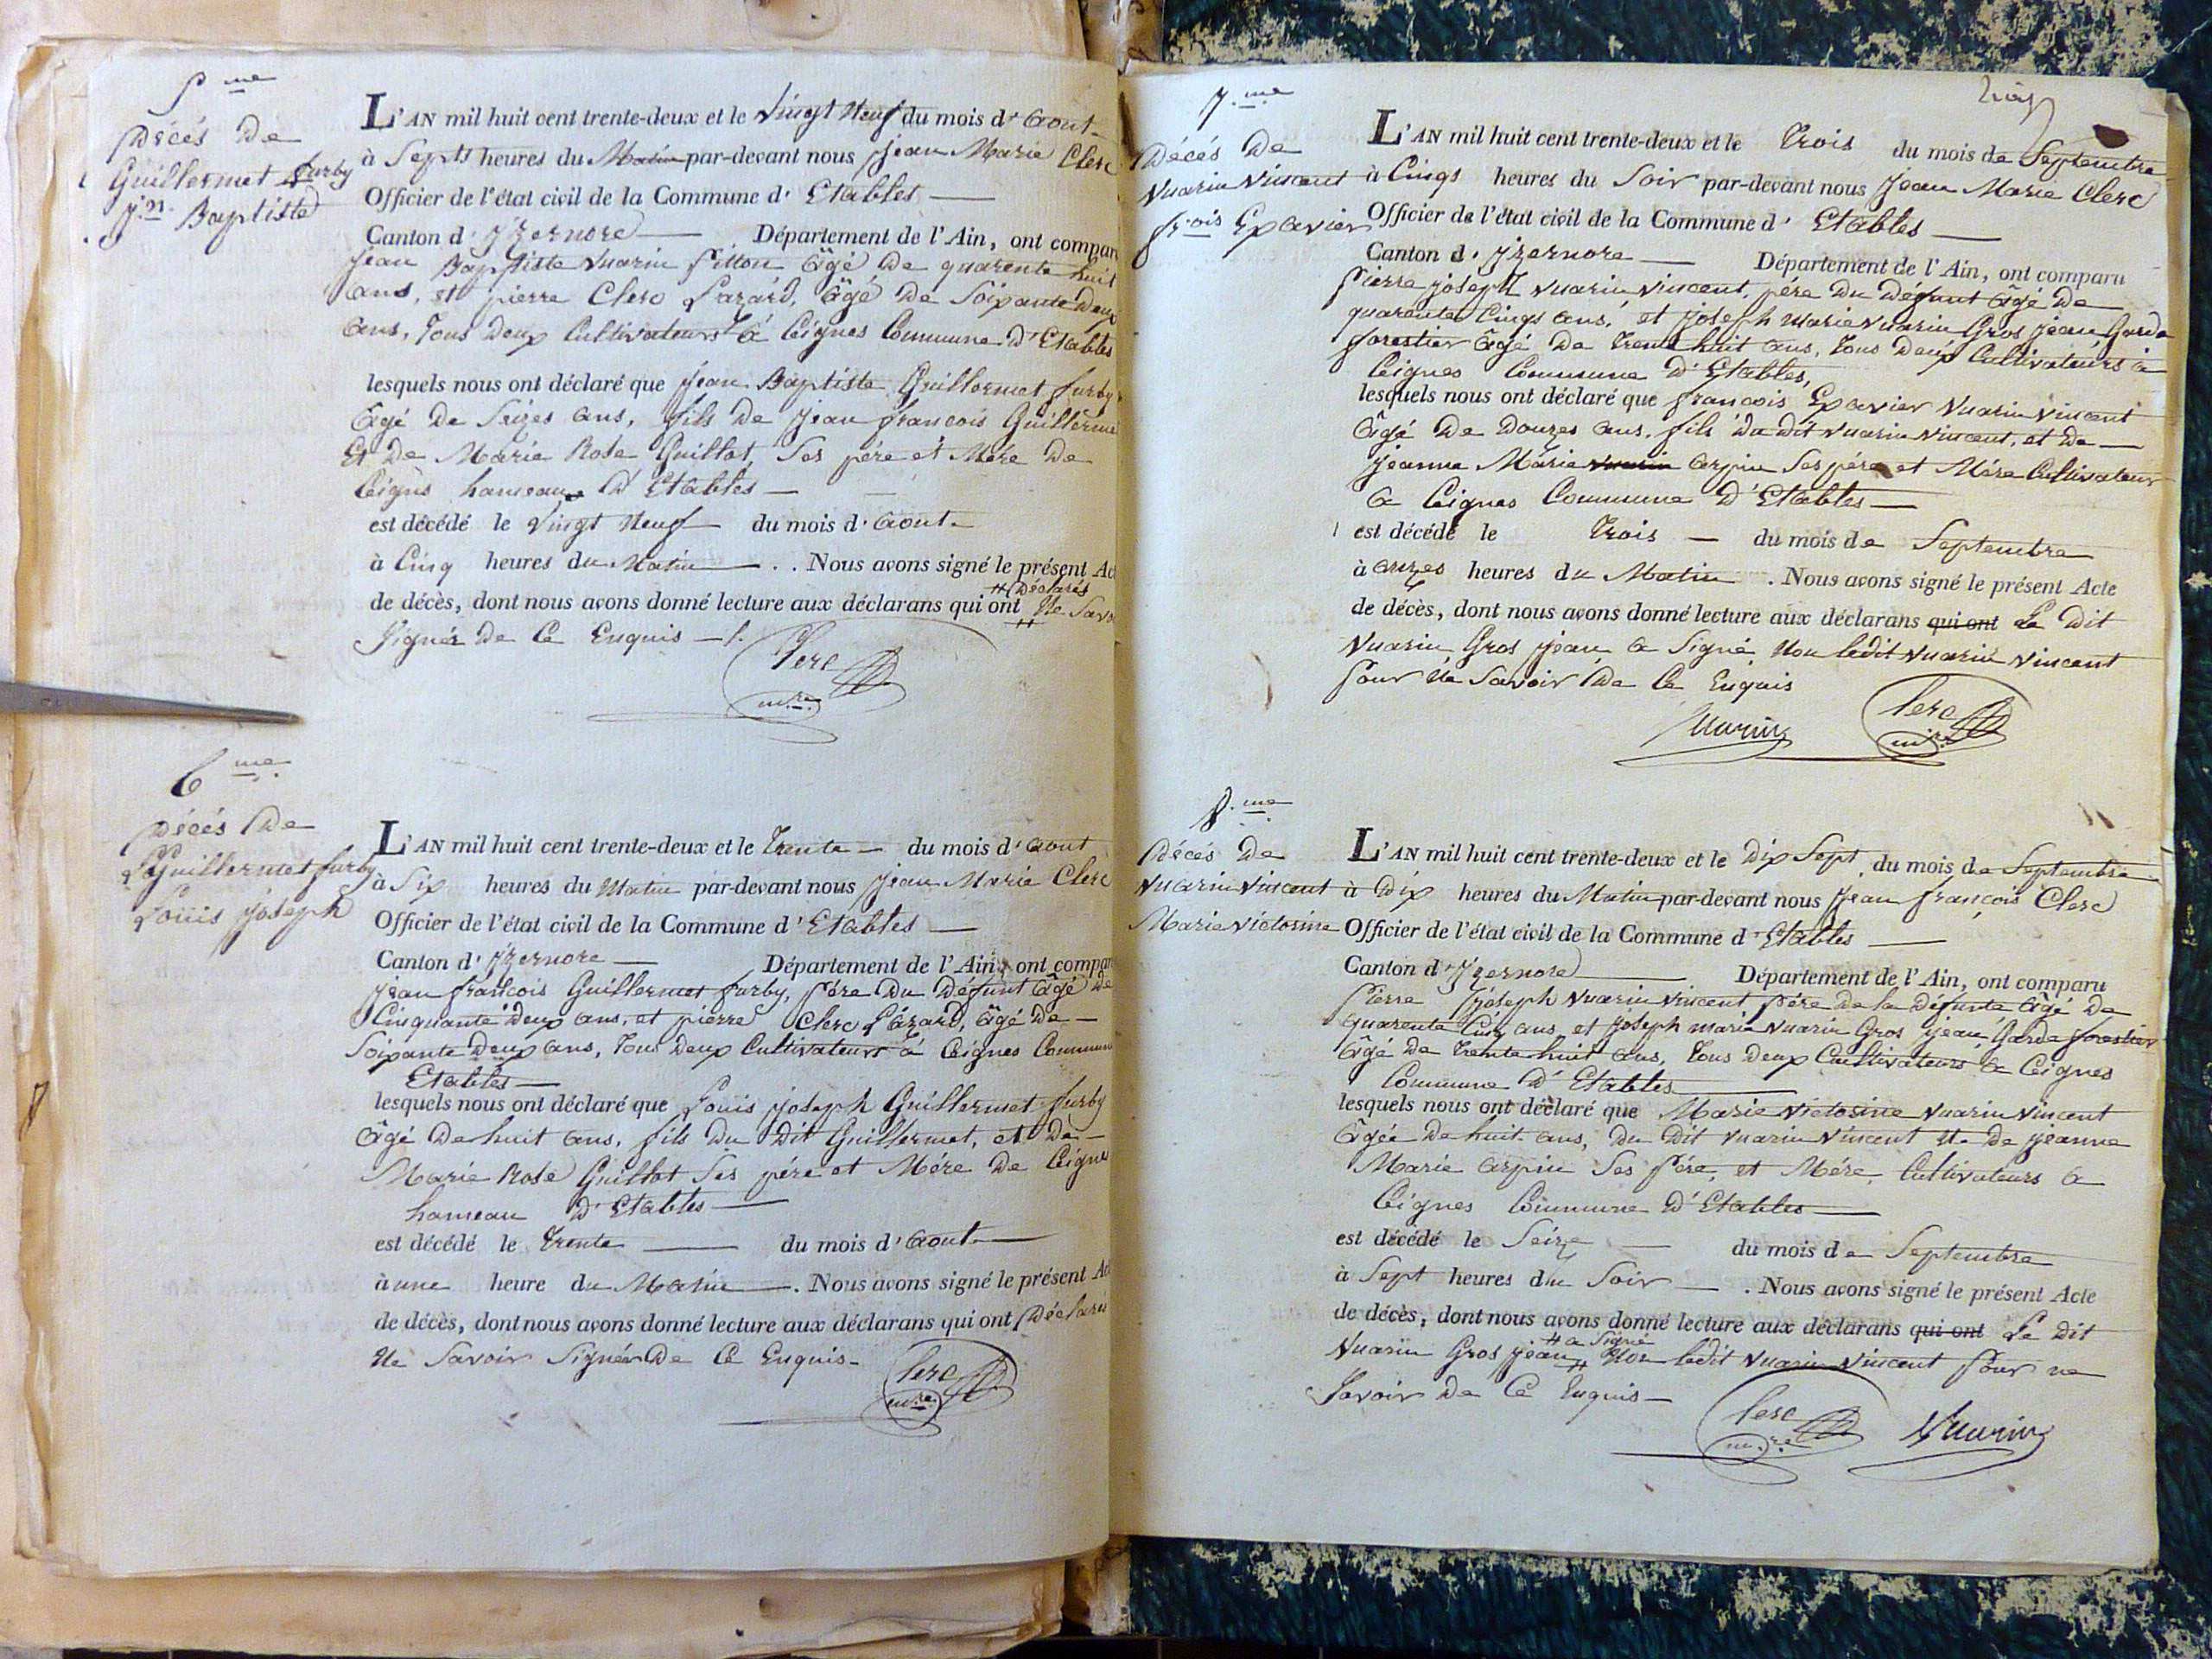 5.me
Décés De
Guillermet furby
J.n Baptiste
L'AN mil huit cent trente-deux et le Vingt Neuf du mois d' Aout
à Septs heures du Matin par-devant nous Jean Marie Clerc
Officier de l'état civil de la Commune d' Etables
Canton d' Jzernore Département de l'Ain, ont comparu
Jean Baptiste Vuarin Pitton âgé De quarente huit
ans, et pierre Clerc Lazard, âgé De Soixante Deux
ans, Tous Deux Cultivateurs à Ceignes Commune D'Etables
lesquels nous ont déclaré que Jean Baptiste Guillermet furby
âgé De Seizes ans, fils De Jean françois Guillerme
Et De Marie Rose Guillot, Ses pére et Mére De
Ceignes hameau D'Etables
est décédé le Vingt Neuf du mois d' Aout
à Cinq heures du Matin . . Nous avons signé le présent Act
de décès, dont nous avons donné lecture aux déclarans qui ont # Déclarés
# Ne Savoi
Signér De Ce Enquis
Clerc
m.re
6.me
Décés De
Guillermet furby
Louis Joseph
L'AN mil huit cent trente-deux et le Trente du mois d' Aout
à Six heures du Matin par-devant nous Jean Marie Clerc
Officier de l'état civil de la Commune d' Etables
Canton d' Jzernore Département de l'Ain, ont compar
Jean françois Guillermet furby, Pére Du Défunt âgé De
Cinquante Deux ans, et pierre Clerc Lazard, âgé De
Soixante Deux ans, Tous Deux Cultivateurs à Ceignes Commune
Etables
lesquels nous ont déclaré que Louis Joseph Guillermet furby
âgé De huit ans, fils Du Dit Guillermet, et De
Marie Rose Guillot Ses pére et Mére De Ceignes
hameau D'Etables
est décédé le Trente du mois d' Aout
à une heure du Matin . Nous avons signé le présent Act
de décès, dont nous avons donné lecture aux déclarans qui ont Déclarés
Ne Savoir Signér De Ce Enquis
Clerc
m.re
7.me
Décés De
Vuarin Vincent
fr.ois Exavier
L'AN mil huit cent trente-deux et le Trois du mois de Septembre
à Cinqs heures du Soir par-devant nous Jean Marie Clerc
Officier de l'état civil de la Commune d' Etables
Canton d' Jzernore Département de l'Ain, ont comparu
Pierre Joseph Vuarin Vincent, pére Du Défunt âgé De
quarente Cinqs ans, et Joseph Marie Vuarin Gros Jean Garde
forestier âgé De Trente huit ans, Tous Deux Cultivateurs à
Ceignes Commune D'Etables,
lesquels nous ont déclaré que françois Exavier Vuarin Vincent
âgé De Douzes ans, fils du dit Vuarin Vincent, et De
Jeanne Marie Vuarin arpin Ses pére et Mére Cultivateur
à Ceignes Commune D'Etables
est décédé le Trois du mois de Septembre
à onzes heures du Matin . Nous avons signé le présent Acte
de décès, dont nous avons donné lecture aux déclarans qui ont Le Dit
Vuarin Gros Jean a Signé Non ledit Vuarin Vincent
Pour Ne Savoir De Ce Enquis
Vuarin
Clerc
m.re
8.me
Décés De
Vuarin Vincent
Marie Victorine
L'AN mil huit cent trente-deux et le Dix Sept du mois de Septembre
à Dix heures du Matin par-devant nous Jean françois Clerc
Officier de l'état civil de la Commune d' Etables
Canton d' Jzernore Département de l'Ain, ont comparu
Pierre Joseph Vuarin Vincent Pére De la Défunte âgé De
quarente Cinq ans, et Joseph marie Vuarin Gros Jean Garde forestier
âgé De Trente huit ans, Tous Deux Cultivateurs à Ceignes
Commune D'Etables
lesquels nous ont déclaré que Marie Victorine Vuarin Vincent
âgée De huit ans, Du Dit Vuarin Vincent et De Jeanne
Marie arpin Ses Pére, et Mére, Cultivateurs à
Ceignes Commune D'Etables
est décédé le Seize du mois de Septembre
à Sept heures du Soir . Nous avons signé le présent Acte
de décès, dont nous avons donné lecture aux déclarans qui ont Le Dit
Vuarin Gros Jean # a Signé # Non ledit Vuarin Vincent Pour ne
Savoir De Ce Enquis
Clerc
m.re
Vuarin